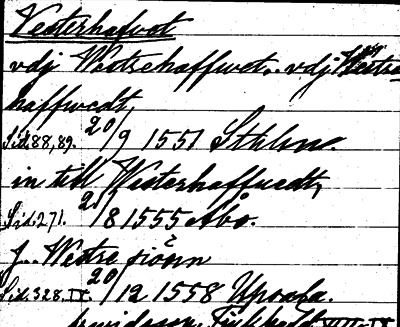 Vesterhafvet
vdj Westrehaffwet.. vdj Westre
haffwedt,
Sid. 88, 89. 20/9 1551 Sthlm.
in till Westerhaffuedt,
Sid. 271. 21/8 1555 Åbo.
j.. Westre siönn
Sid. 328. IX. 20/12 1558 Upsala.